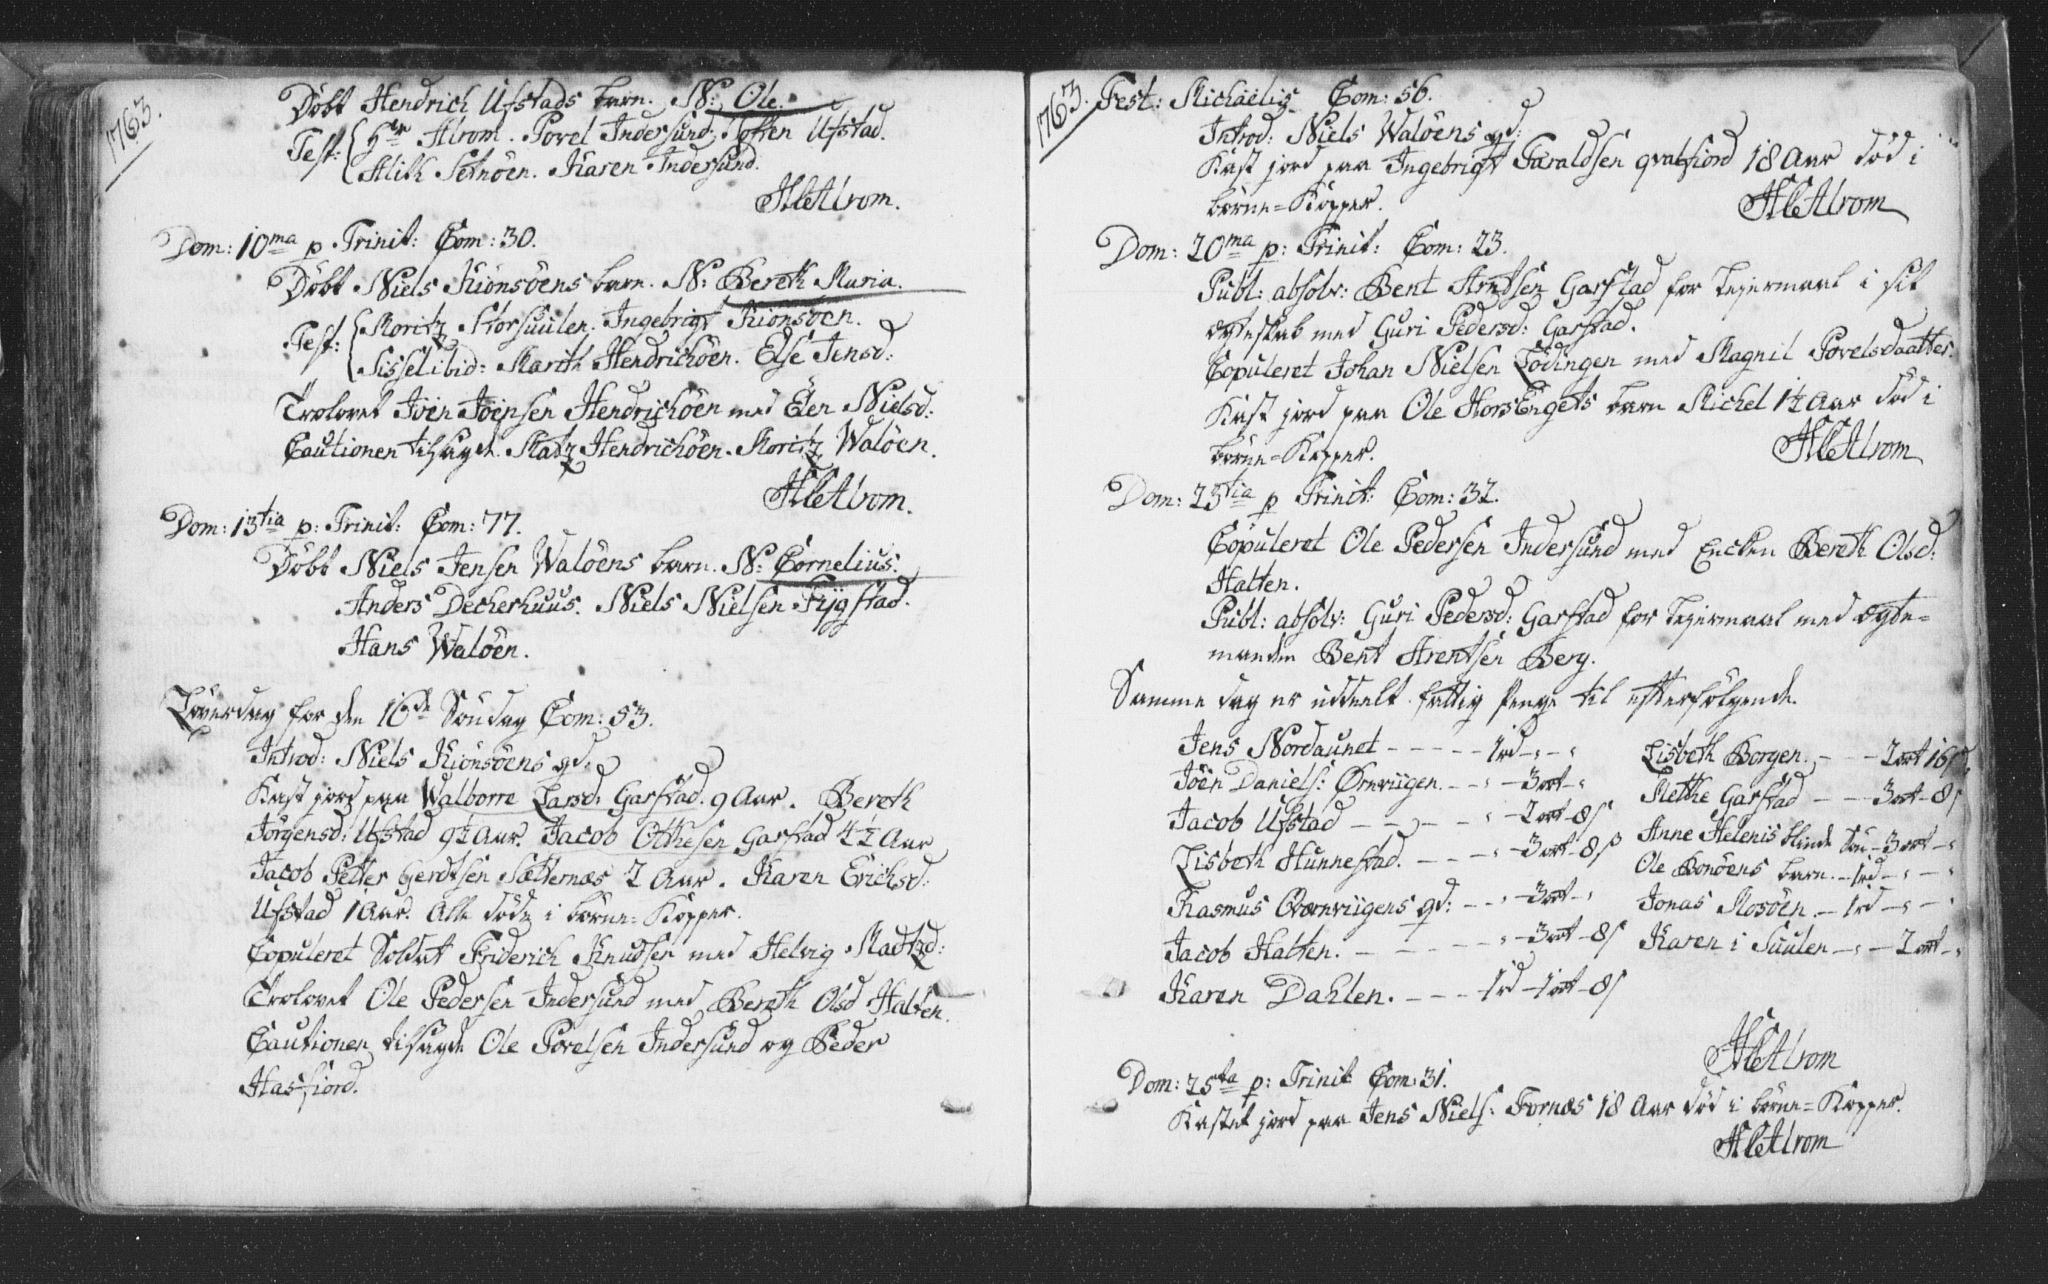 1763.
Døbt Hendrich Ufstads barn. N: Ole.
Test: Hr Alrom. Povel Indersund, Toften Ufstad.
Alith Setnöen. Karen Indersund.
Alrom.
Dom: 10ma p. Trinit: Com: 30.
Døbt Niels Kiönsöens barn. N: Bereth Maria.
Test: Moritz Storsuulen. Ingebrigt Kiönsöen.
Sissel ibid: Marith Hendrichöen. Else Jensd:
Trolovet Joen Joensen Hendrichöen med Elen Nielsd:
Cautionen tilsagde Matz Hendrichöen. Moritz Walöen.
Alrom.
Dom: 13tia p: Trinit: Com: 77.
Døbt Niels Jensen Walöens barn. N: Cornelius.
Anders Decherhuus. Niels Nielsen Fygstad.
Hans Walöen.
Løverdag for den 16de Søndag Com: 53.
Introd: Niels Kiönsöens qd:
Kast jord paa Walborre Larsd: Garstad. 9 Aar. Bereth
Jörgensd: Ufstad 9½ Aar. Jacob Otthesen Garstad 4½ Aar
Jacob Petter Gerdtsen Sætternæs 2 Aar. Karen Erichsd:
Ufstad 1 Aar. Alle døde i børne-Kopper.
Copuleret Soldat Friderich Knudsen med Helvig Madtzd:
Trolovet Ole Pedersen Indersund med Bereth Olsd Halten.
Cautionen tilsagde Ole Povelsen Indersund og Peder
Hasfiord.
1763.
Fest: Michaëlis Com: 56.
Introd: Niels Walöens qd:
Kast jord paa Ingebrigt Faraldsen qvalfiord 18 Aar død i
børne-Kopper.
Alrom
Dom: 20ma p: Trinit: Com: 23.
Publ: absolv: Bent Arntsen Garstad for Leyermaal i sit
ægteskab med Guri Pedersd: Garstad.
Copuleret Johan Nielsen Lødingen med Magnil Povelsdaatter.
Kast jord paa Ole HorsEngets barn Michel 1½ Aar død i
børne-Kopper.
Alrom
Dom: 23tia p Trinit: Com: 32.
Copuleret Ole Pedersen Indersund med Encken Bereth Olsd:
Halten.
Publ: absolv: Guri Pedersd: Garstad for Leyermaal med ægte-
manden Bent Arentsen Berg.
Samme dag er uddeelt fattig Penge til efterfølgende.
Jens Nordaunet - - - - - 1rd - " - "
Joen Daniels: Ørnviigen - - " - 3ort - "
Jacob Ufstad - - - - " - 2ort - 8s
Lisbeth Hunnestad. - - - " - 3ort - 8s
Rasmus Oværnviigens qd: - - " - 3ort - "
Jacob Halten. - - - - - " - 3ort - 8s
Karen Dahlen. - - - 1rd - 1ort - 8s
Lisbeth Borgen. - - - 2ort 16s
Methe Garstad - - - 3ort - 8s
Anne Helenis blinde Søn - 3ort - "
Ole Bonöens barn. - 1rd - " - "
Jonas Mosöen. - 1rd - " - "
Karen i Suulen - " - 2ort - "
Alrom
Dom: 25ta p: Trinit Com: 31.
Kastet jord paa Jens Niels: Fornæs 18 Aar død i børne-Kopper.
Alrom